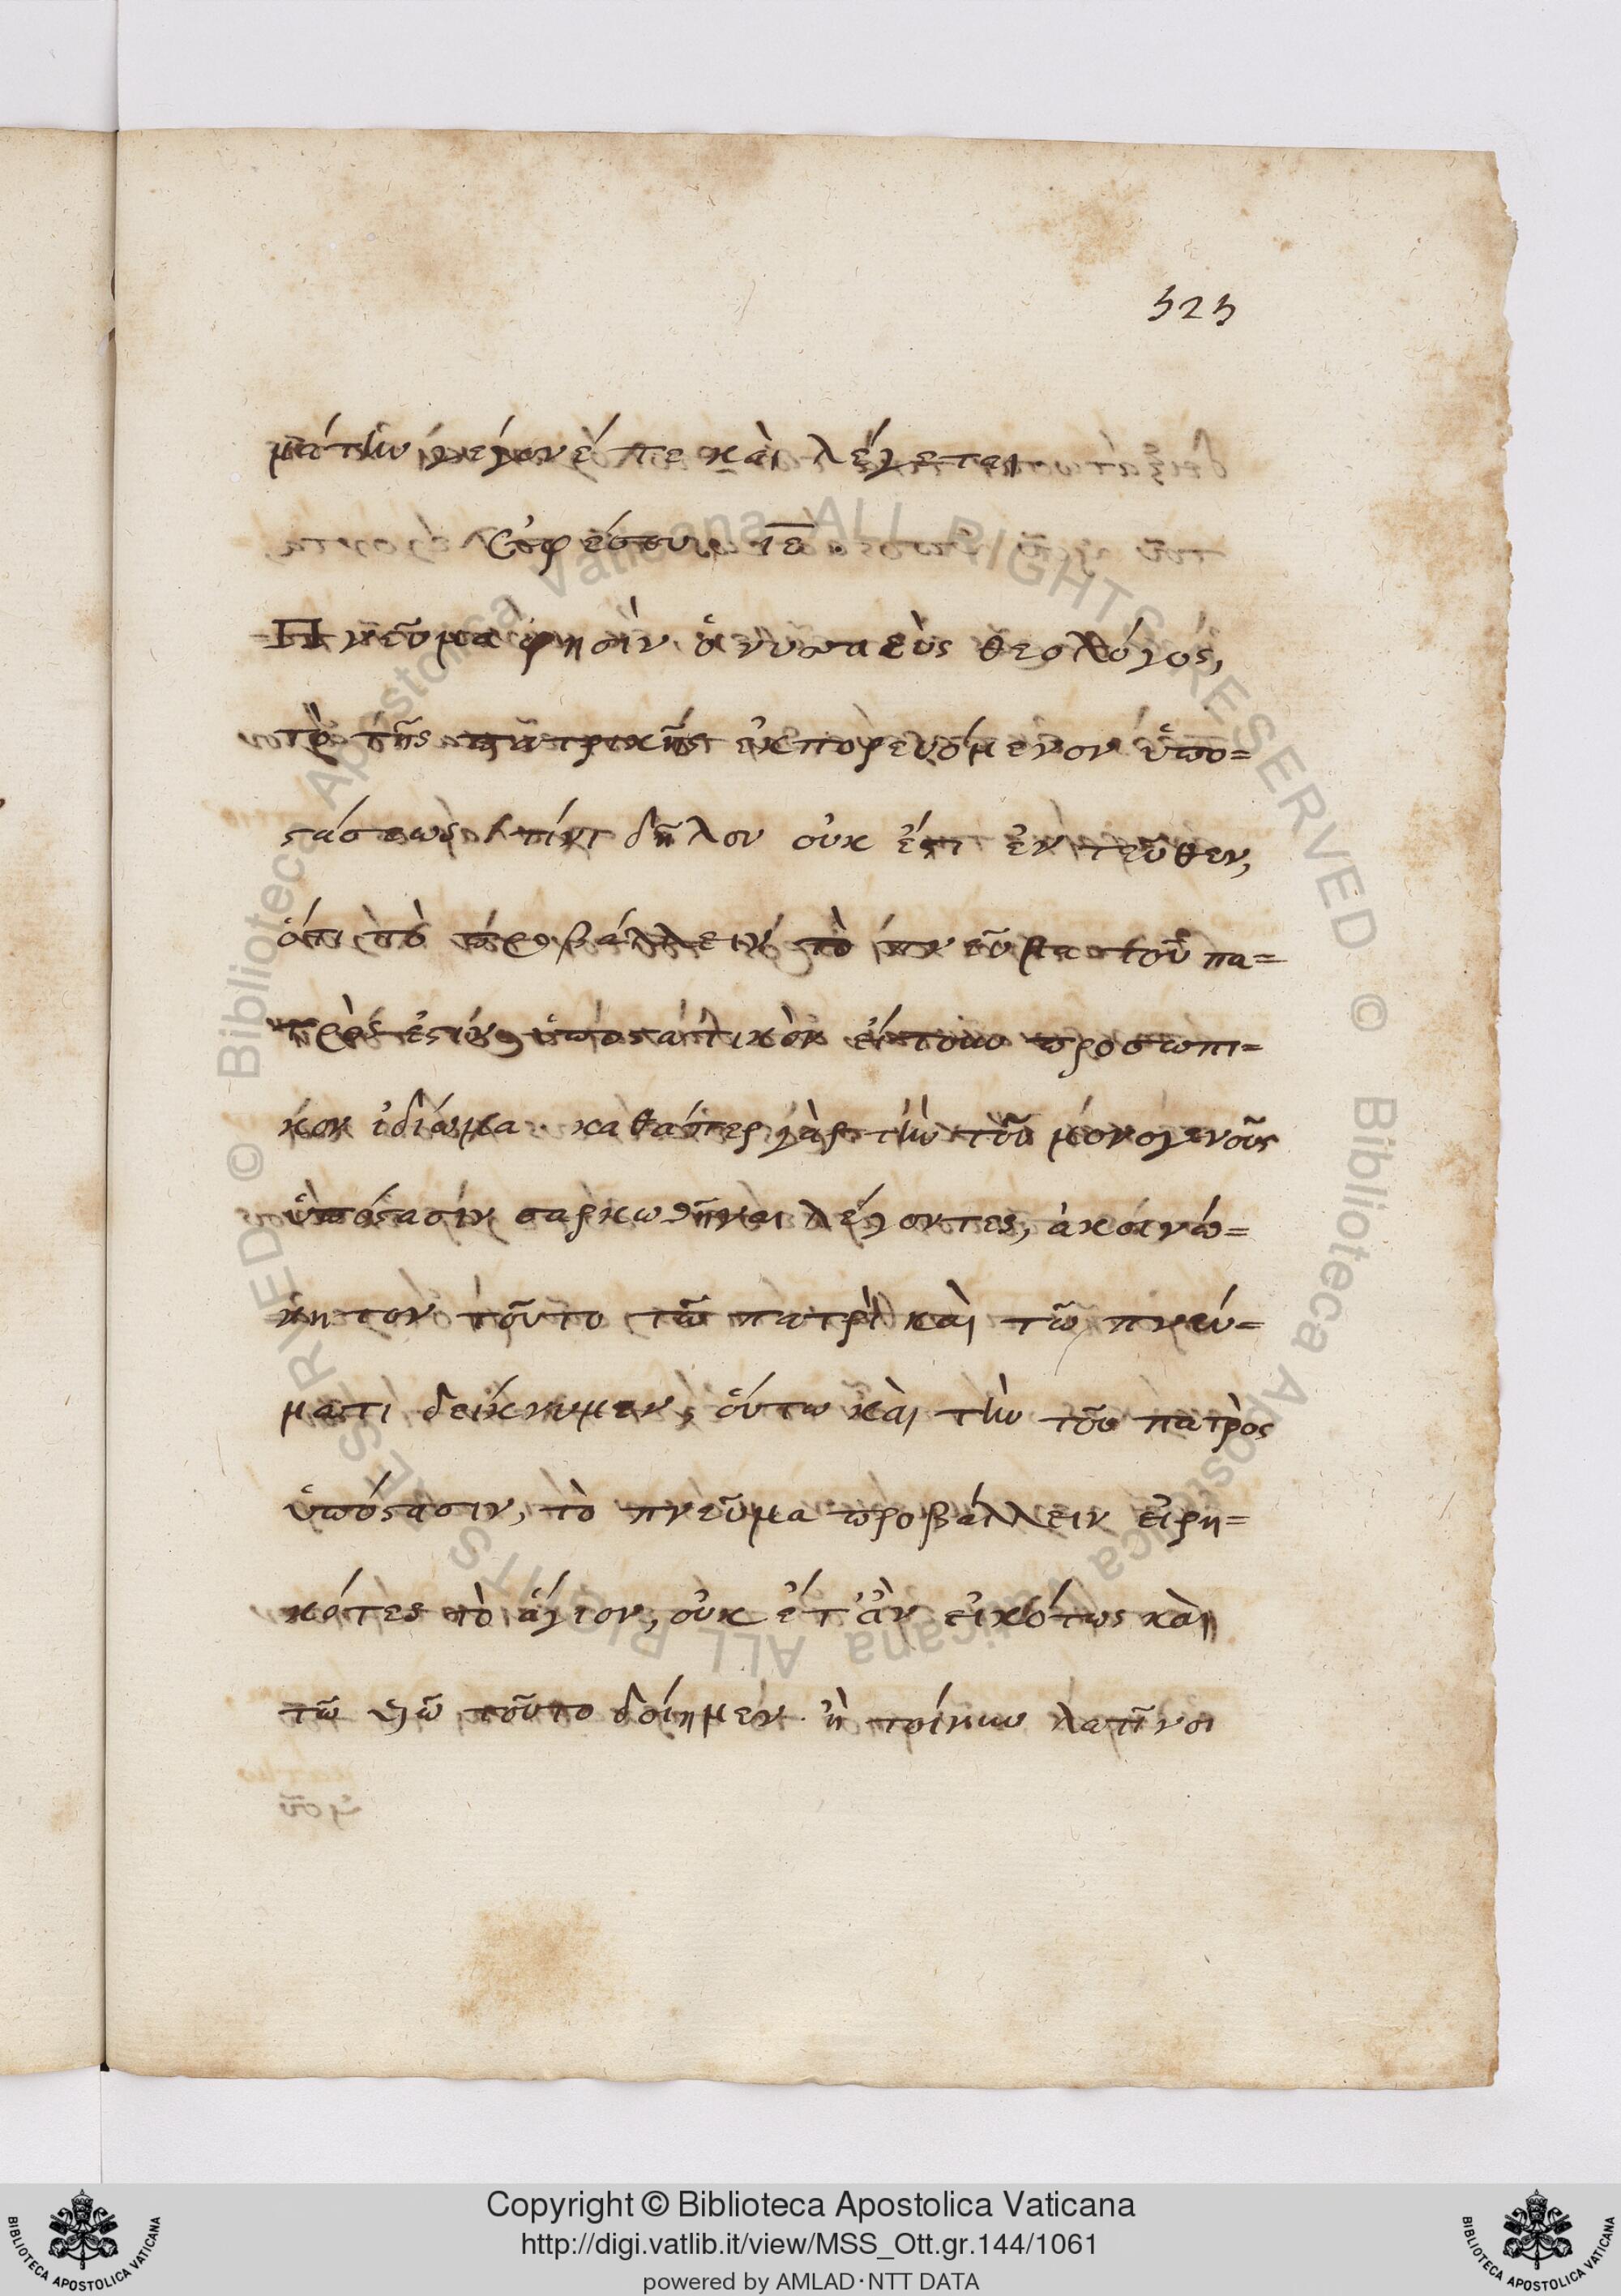 523
μάτων γέγονέ τε καὶ λέγεται
Ἐφέσου ιε.
Πνεῦμα φησὶν ὁ νυσσαεὺς θεολόγος,
τὸ τῆς πατρικῆς ἐκπορευόμενον ὑπο=
στάσεως. τίνι δῆλον οὐκ ἔστι ἐντεῦθεν,
ὅτι τὸ προβάλλειν τὸ πνεῦμα τοῦ πα=
τρός ἐστιν ὑποστατικὸν εἴτουν προσωπι=
κὸν ἰδίωμα. καθάπερ γὰρ τὴν τοῦ μονογενοῦς
ὑπόστασιν σαρκωθῆναι λέγοντες, ἀκοινώ=
νητον τοῦτο τῶ πατρὶ καὶ τῶ πνεύ=
ματι δείκνυμεν, οὕτω καὶ τὴν τοῦ πατρὸς
ὑπόστασιν, τὸ πνεῦμα προβάλλειν εἰρη=
κότες τὸ ἅγιον, οὐκ ἔτ' ἂν εἰκότως καὶ
τῶ υἱῶ τοῦτο δοίημεν. ἢ τοίνυν λατῖνοι
Copyright © Biblioteca Apostolica Vaticana
http://digi.vatlib.it/view/MSS_Ott.gr.144/1061
powered by AMLAD·NTT DATA
BIBLIOTECA APOSTOLICA VATICANA
BIBLIOTECA APOSTOLICA VATICANA
© Biblioteca Apostolica Vaticana ALL RIGHTS RESERVED © Biblioteca Apostolica Vaticana ALL RIGHTS RESERVED